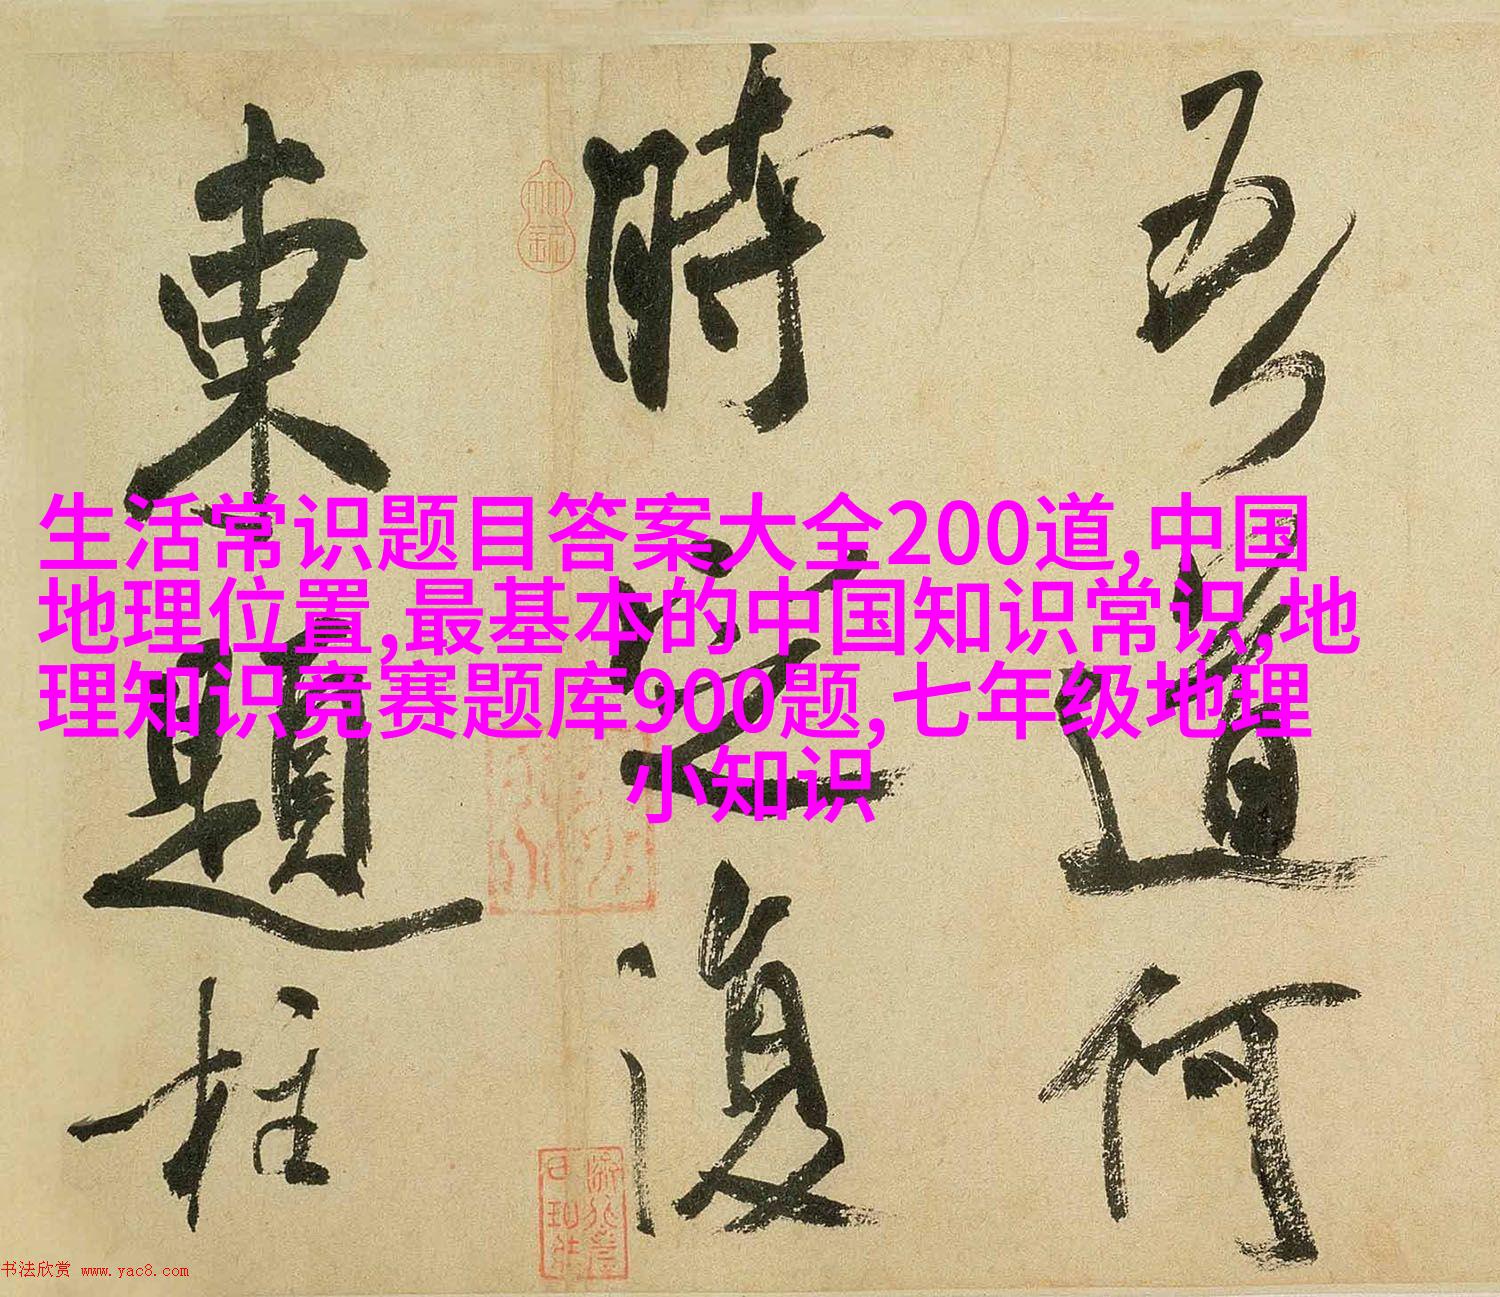 吾道何
時定復
東題柱
生活常识题目答案大全200道,中国
地理位置,最基本的中国知识常识,地
理知识竞赛题库900题,七年级地理
小知识
书法欣赏 www.yac8.com